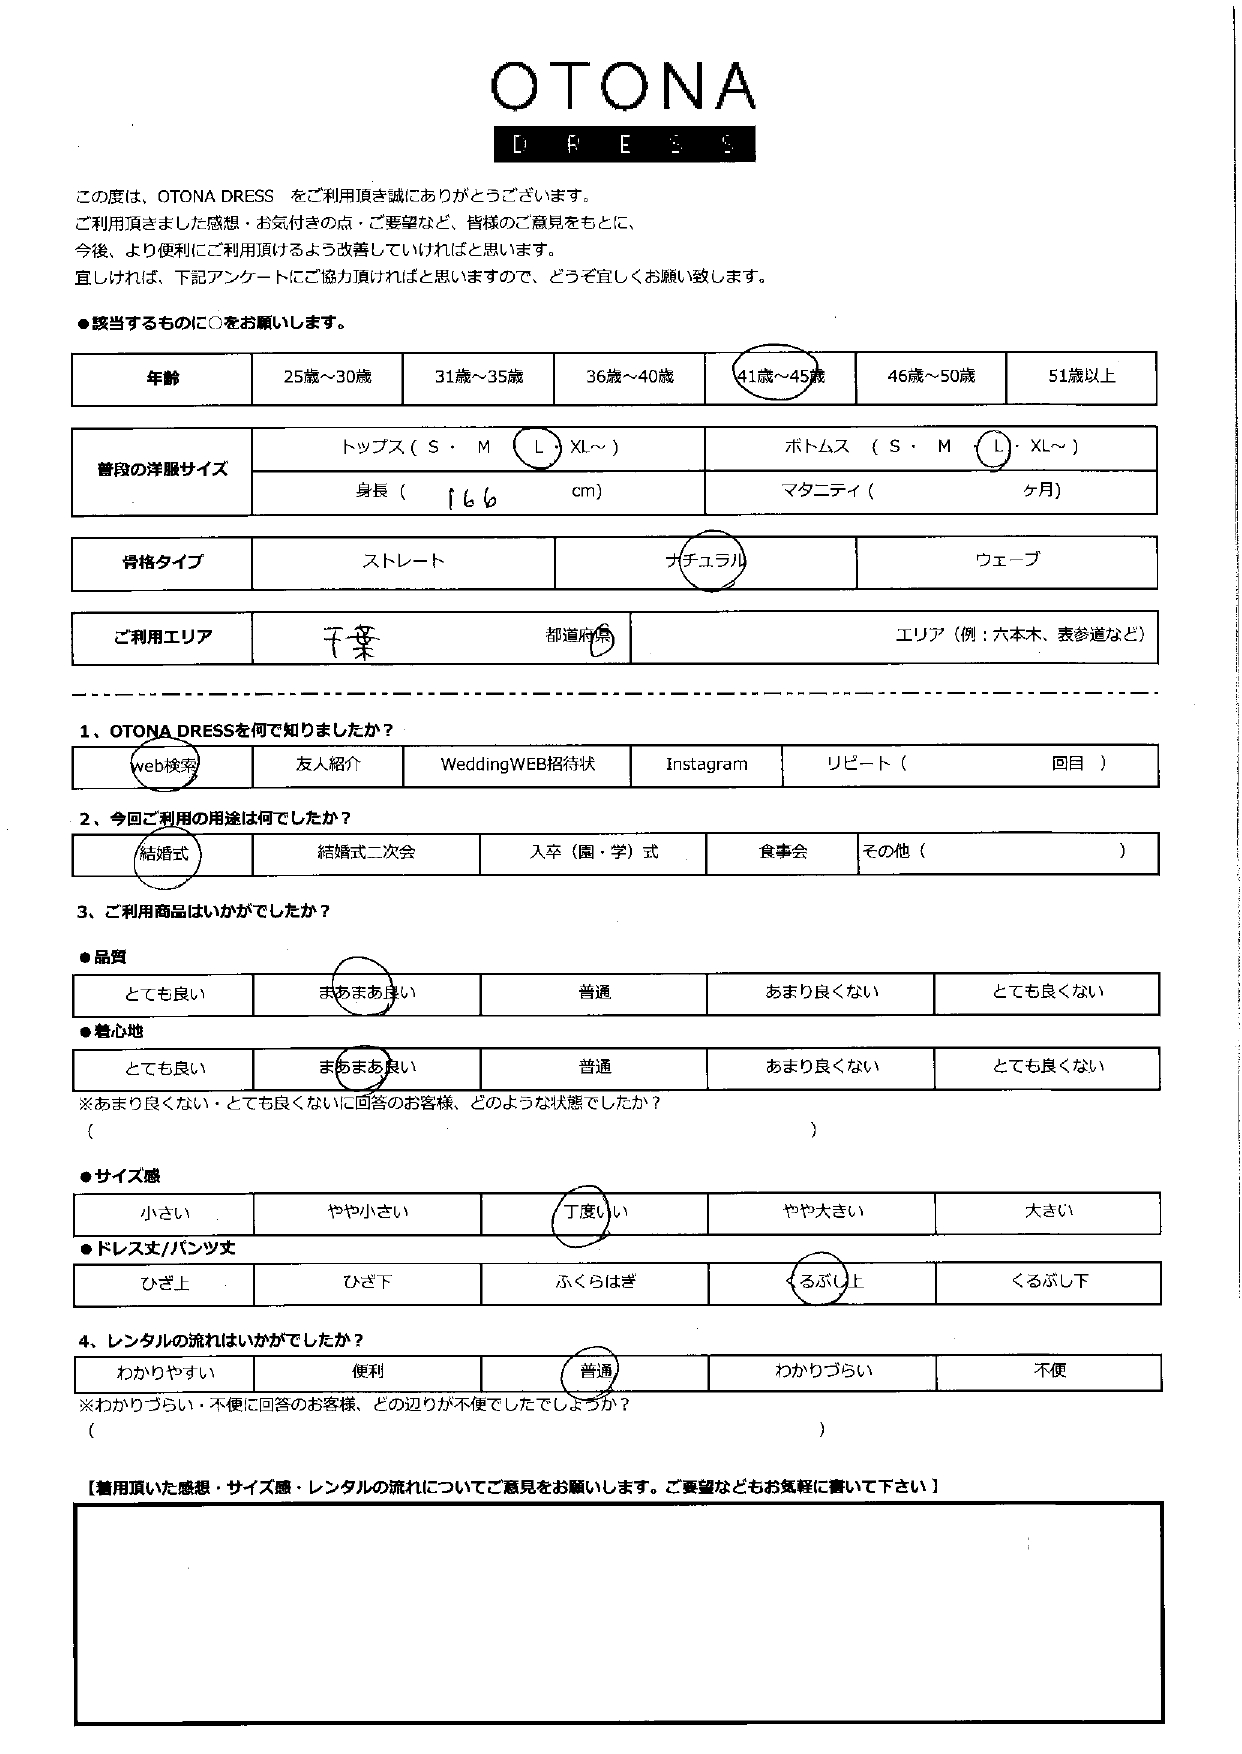 OTONA
DRESS
この度は、OTONA DRESS をご利用頂き誠にありがとうございます。
ご利用頂きました感想・お気付きの点・ご要望など、皆様のご意見をもとに、
今後、より便利にご利用頂けるよう改善していければと思います。
宜しければ、下記アンケートにご協力頂ければと思いますので、どうぞ宜しくお願い致します。
●該当するものに○をお願いします。
年齢 25歳～30歳 31歳～35歳 36歳～40歳 41歳～45歳 46歳～50歳 51歳以上
普段の洋服サイズ トップス ( S ・ M ・ L ・ XL～ ) ボトムス ( S ・ M ・ L ・ XL～ )
身長 ( 166 cm) マタニティ ( ヶ月)
骨格タイプ ストレート ナチュラル ウェーブ
ご利用エリア 千葉 都道府県 エリア（例：六本木、表参道など）
1、OTONA DRESSを何で知りましたか？
web検索 友人紹介 WeddingWEB招待状 Instagram リピート ( 回目 )
2、今回ご利用の用途は何でしたか？
結婚式 結婚式二次会 入卒（園・学）式 食事会 その他 ( )
3、ご利用商品はいかがでしたか？
●品質
とても良い まあまあ良い 普通 あまり良くない とても良くない
●着心地
とても良い まあまあ良い 普通 あまり良くない とても良くない
※あまり良くない・とても良くないに回答のお客様、どのような状態でしたか？
( )
●サイズ感
小さい やや小さい 丁度いい やや大きい 大きい
●ドレス丈/パンツ丈
ひざ上 ひざ下 ふくらはぎ くるぶし上 くるぶし下
4、レンタルの流れはいかがでしたか？
わかりやすい 便利 普通 わかりづらい 不便
※わかりづらい・不便に回答のお客様、どの辺りが不便でしたでしょうか？
( )
【着用頂いた感想・サイズ感・レンタルの流れについてご意見をお願いします。ご要望などもお気軽に書いて下さい】